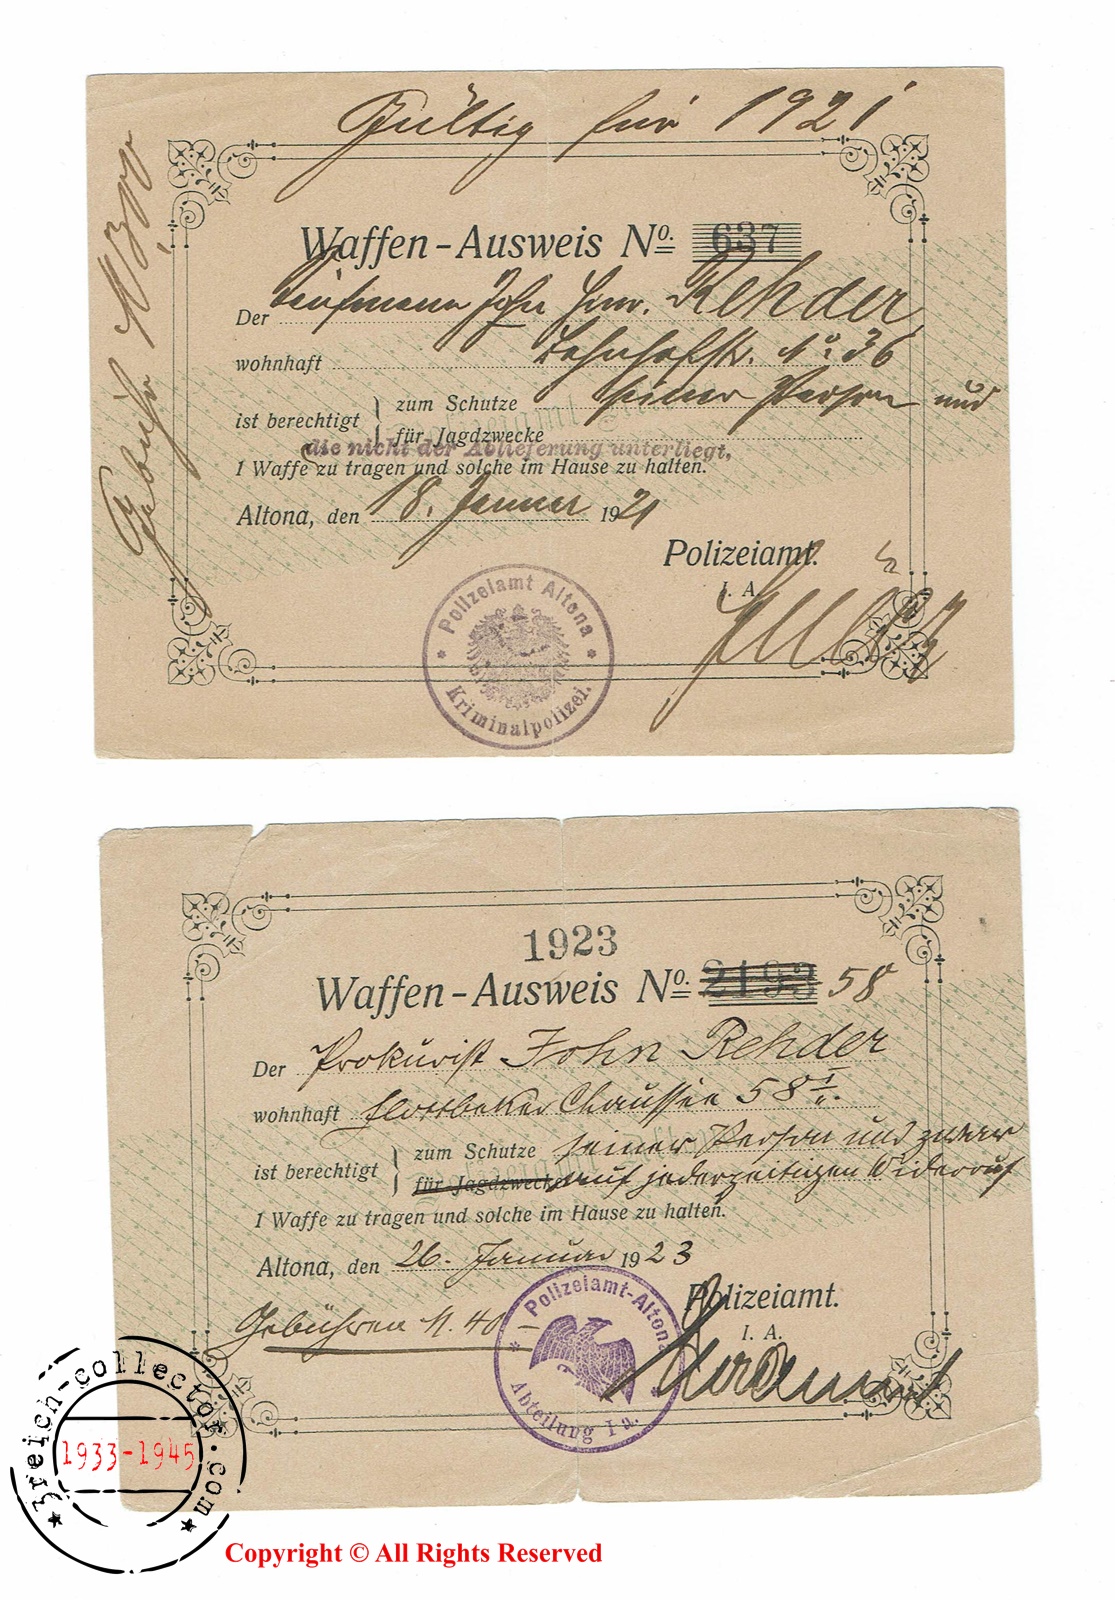 Gültig für 1921
Gebühr M 3,00
Waffen-Ausweis No. 637
Der Kaufmann John Hinr. Rehder,
wohnhaft Bahnhofstr. No. 36
ist berechtigt } zum Schutze seiner Person und
für Jagdzwecke
die nicht der Ablieferung unterliegt,
1 Waffe zu tragen und solche im Hause zu halten.
Altona, den 18. Januar 1921
Polizeiamt.
I. A.
* Polizeiamt Altona *
Kriminalpolizei.
1923
Waffen-Ausweis No. 2193 58
Der Prokurist John Rehder
wohnhaft Flottbeker Chaussee 58 I
ist berechtigt } zum Schutze seiner Person und zwar
für Jagdzwecke auf jederzeitigen Widerruf
1 Waffe zu tragen und solche im Hause zu halten.
Altona, den 26. Januar 1923
Gebühren M. 40.-
Polizeiamt.
I. A.
* Polizeiamt-Altona *
Abteilung I a.
*3reich-collector.com*
1933-1945
Copyright © All Rights Reserved